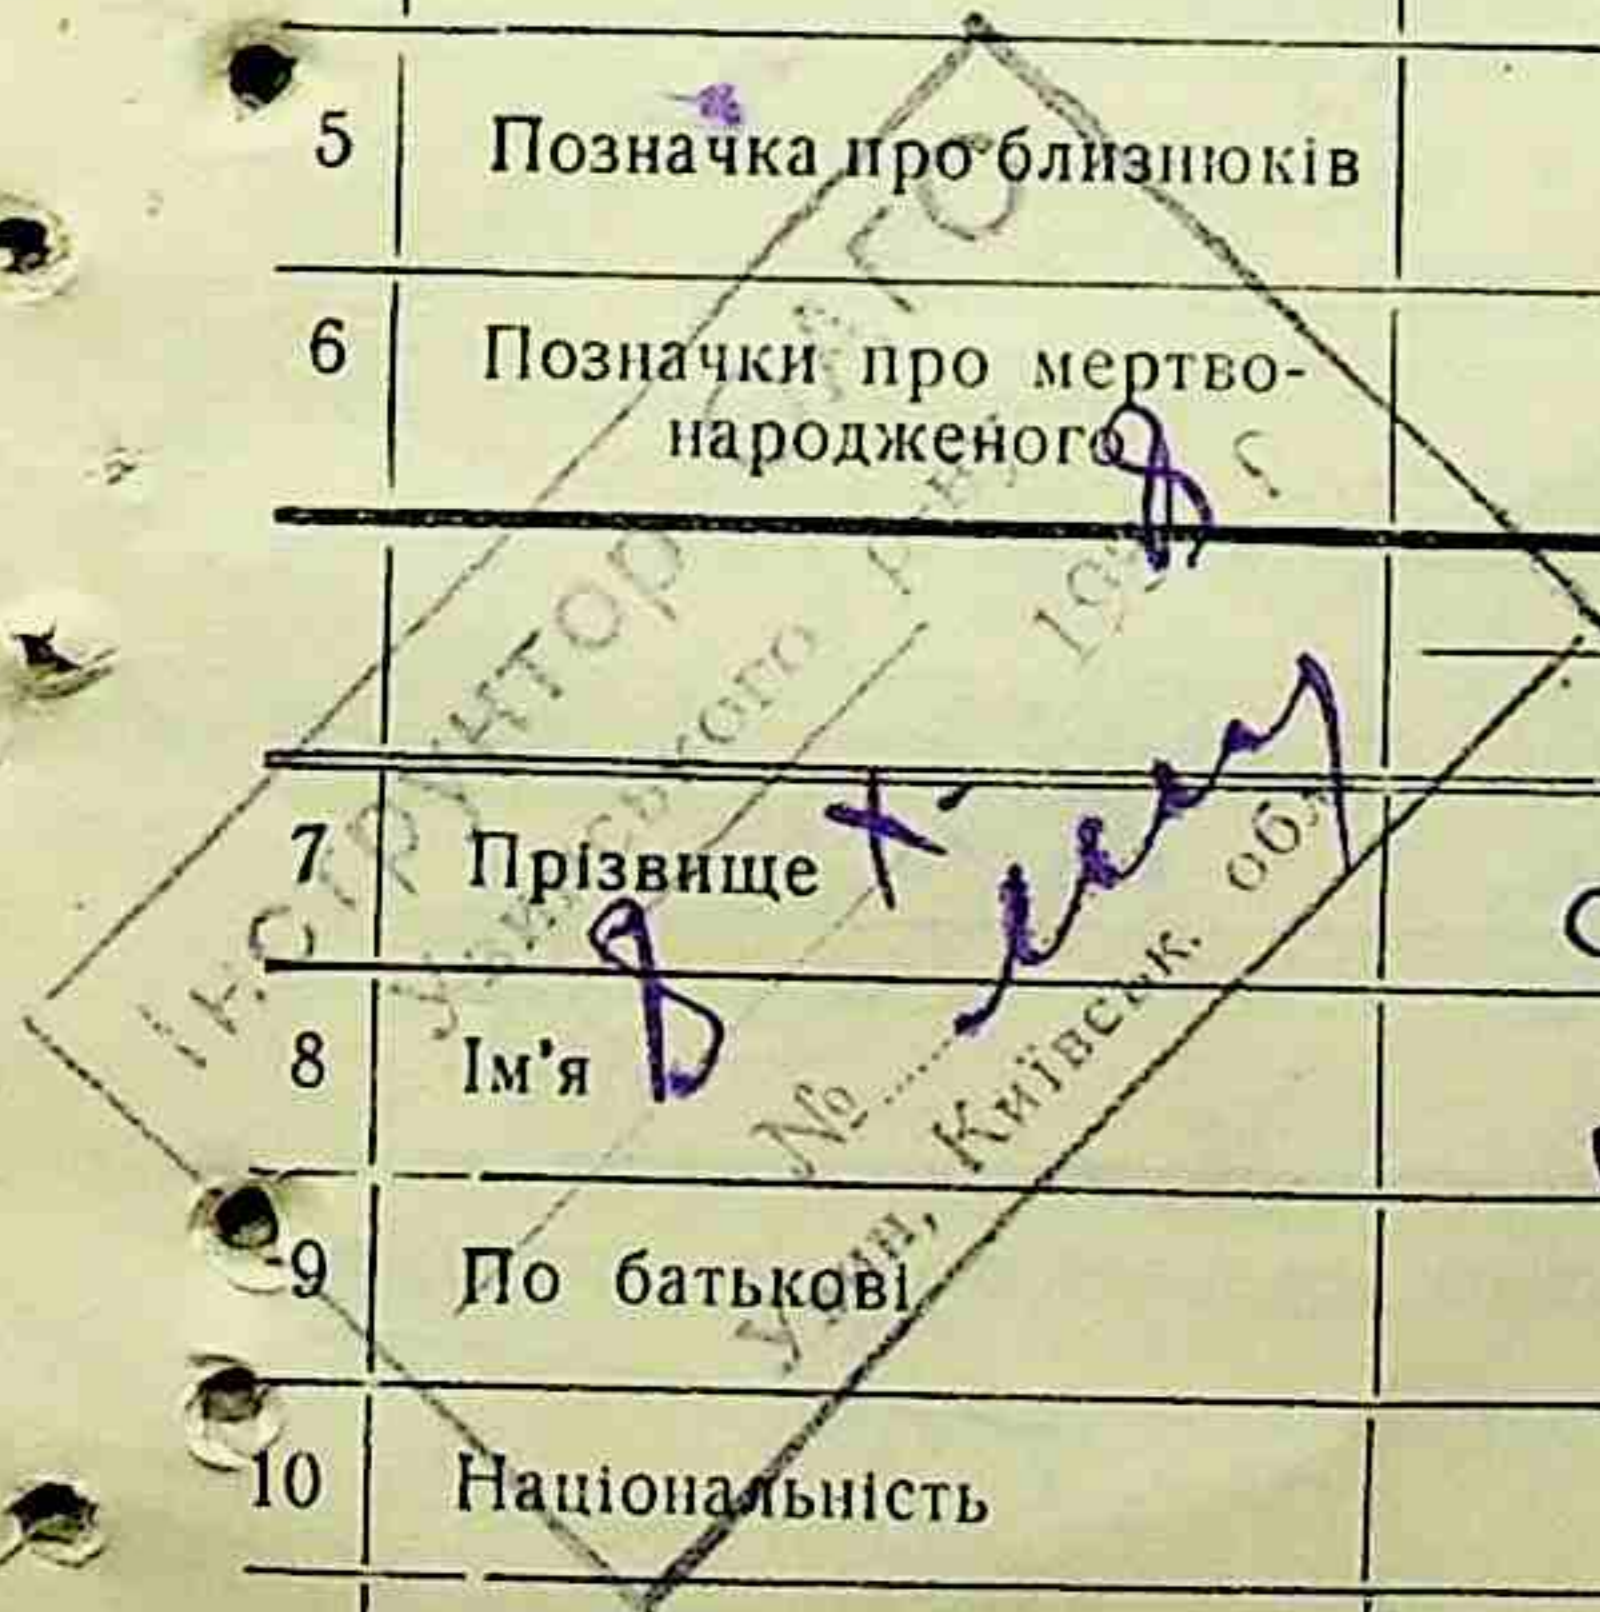 5 Позначка про близнюків
6 Позначки про мертво-
народженого
7 Прізвище
8 Ім'я
9 По батькові
10 Національність
Інструктор ЗАГС
№
Київськ. обл.